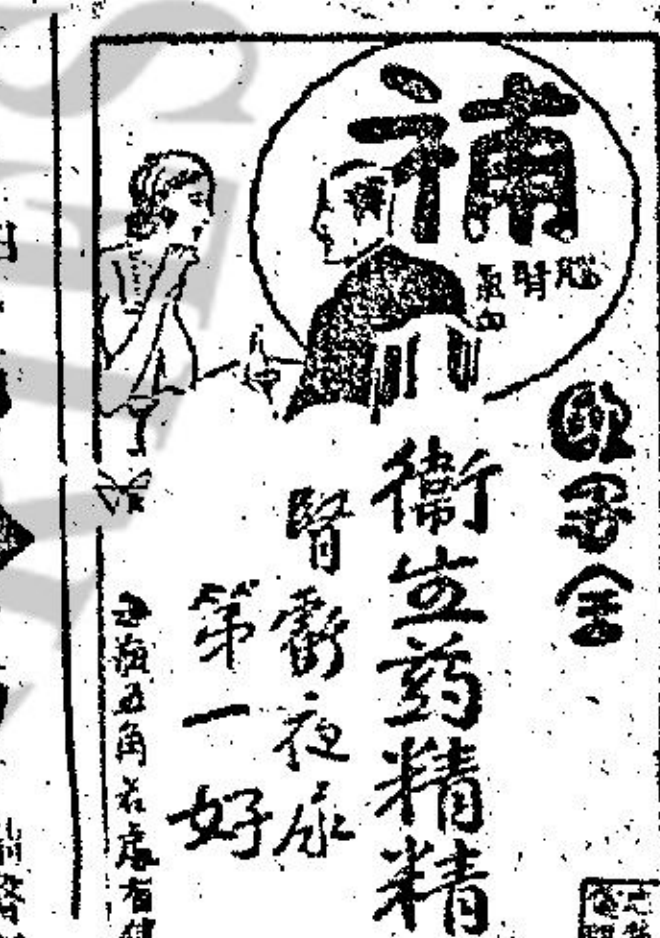 補
腦
腎
氣血
歐家全
衞生药精精
腎虧夜尿
第一好
每瓶五角各處有售